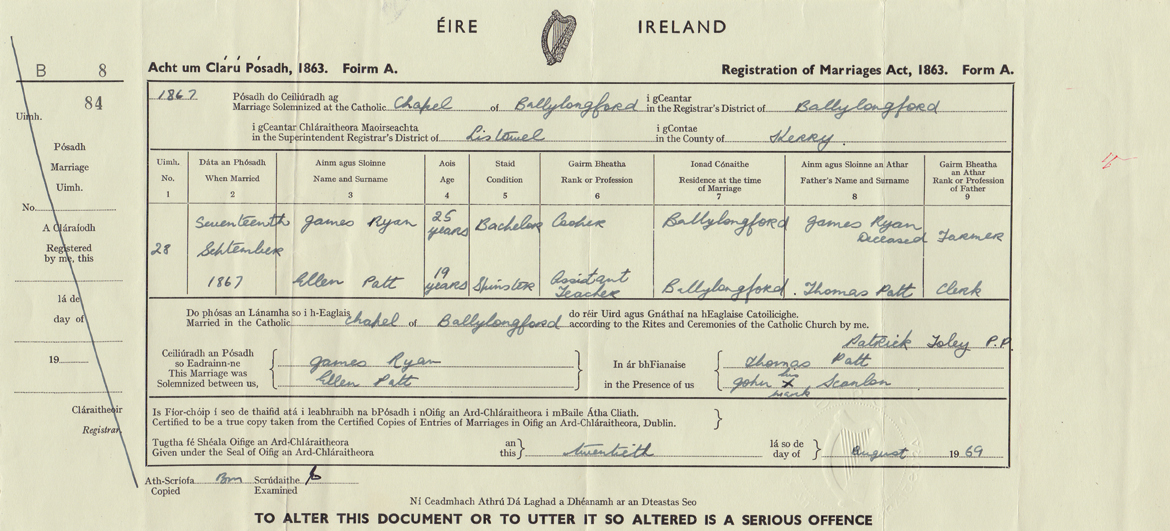 ÉIRE IRELAND
Acht um Clárú Pósadh, 1863. Foirm A. Registration of Marriages Act, 1863. Form A.
B 8
84
Uimh.
Pósadh
Marriage
Uimh.
No.
A Cláraíodh
Registered
by me, this
lá de
day of
19
Cláraitheoir
Registrar.
1867 Pósadh do Ceiliúradh ag i gCeantar
Marriage Solemnized at the Catholic Chapel of Ballylongford in the Registrar's District of Ballylongford
i gCeantar Chláraitheora Maoirseachta i gContae
in the Superintendent Registrar's District of Listowel in the County of Kerry.
Uimh. Dáta an Phósadh Ainm agus Sloinne Aois Staid Gairm Bheatha Ionad Cónaithe Ainm agus Sloinne an Athar Gairm Bheatha an Athar
No. When Married Name and Surname Age Condition Rank or Profession Residence at the time of Marriage Father's Name and Surname Rank or Profession of Father
1 2 3 4 5 6 7 8 9
28 Seventeenth September 1867
James Ryan 25 years Bachelor Ballylongford James Ryan Deceased Farmer
Ellen Patt 19 years Spinster Assistant Teacher Ballylongford. Thomas Patt Clerk
Do phósas an Lánamha so i h-Eaglais do réir Uird agus Gnáthaí na hEaglaise Catoilicighe.
Married in the Catholic Chapel of Ballylongford according to the Rites and Ceremonies of the Catholic Church by me.
Patrick Foley P.P.
Ceiliúradh an Pósadh
so Eadrainn-ne James Ryan In ár bhFianaise Thomas Patt
This Marriage was
Solemnized between us, Ellen Patt in the Presence of us John his X mark Scanlon
Is Fíor-chóip í seo de thaifid atá i leabhraibh na bPósadh i nOifig an Ard-Chláraitheora i mBaile Átha Cliath.
Certified to be a true copy taken from the Certified Copies of Entries of Marriages in Oifig an Ard-Chláraitheora, Dublin.
Tugtha fé Shéala Oifige an Ard-Chláraitheora an lá so de
Given under the Seal of Oifig an Ard-Chláraitheora this twentieth day of August 1969
Ath-Scríofa Scrúdaithe
Copied Examined
Ní Ceadmhach Athrú Dá Laghad a Dhéanamh ar an Dteastas Seo
TO ALTER THIS DOCUMENT OR TO UTTER IT SO ALTERED IS A SERIOUS OFFENCE